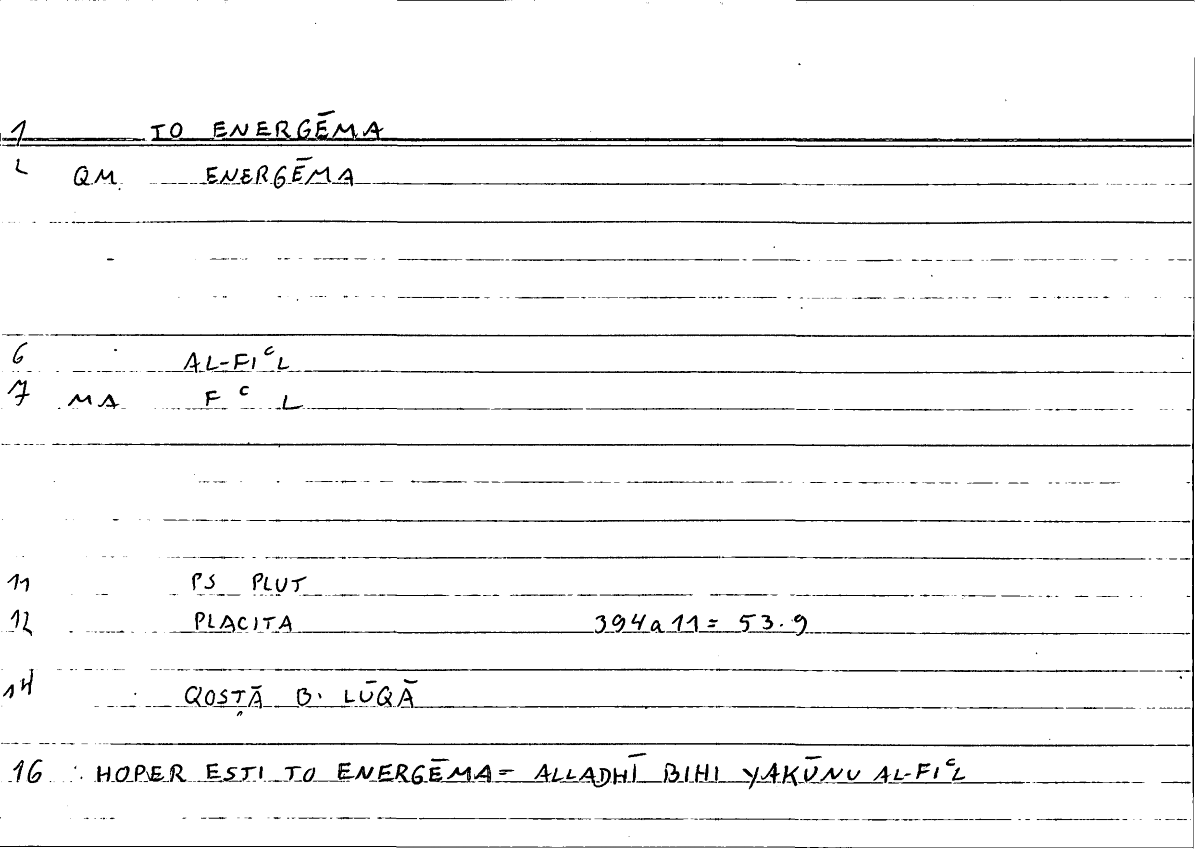 1 TO ENERGĒMA
2 QM ENERGĒMA
6 AL-FIᶜL
7 MA F ᶜ L
11 PS PLUT
12 PLACITA 394a11= 53.9
14 QOSṬĀ B. LŪQĀ
16 HOPER ESTI TO ENERGĒMA= ALLADHĪ BIHI YAKŪNU AL-FIᶜL